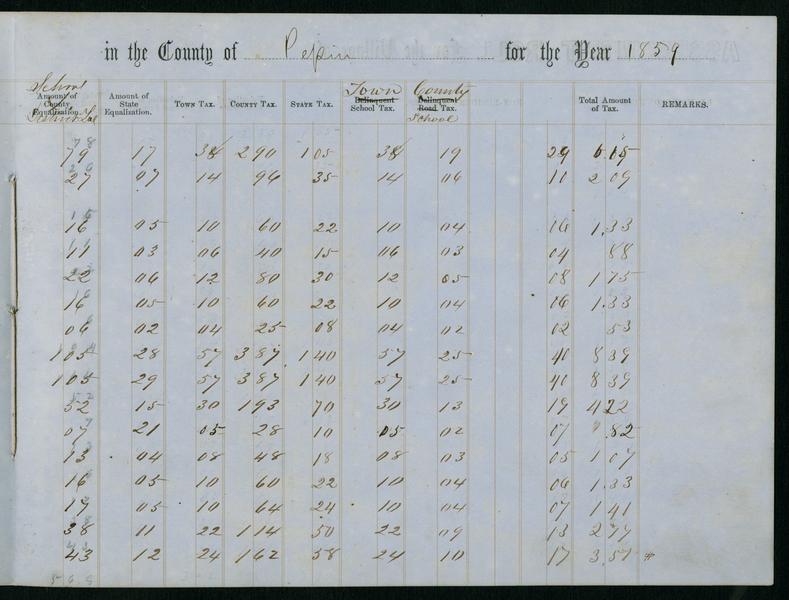 in the County of Pepin for the Year 1859
School Town County
Amount of County Equalization. Amount of State Equalization. Town Tax. County Tax. State Tax. Delinquent School Tax. Delinquent Road Tax. Total Amount of Tax. REMARKS.
School
79 17 38 290 105 38 19 29 6.15
27 07 14 96 35 14 06 10 2 09
16 05 10 60 22 10 04 06 1.33
11 03 06 40 15 06 03 04 88
22 06 12 80 30 12 05 08 1 75
16 05 10 60 22 10 04 06 1.33
06 02 04 25 08 04 02 02 53
105 28 57 387 140 57 25 40 8 39
105 29 57 387 140 57 25 40 8 39
52 15 30 193 70 30 13 19 4 22
07 21 05 28 10 05 02 07 .82
13 04 08 48 18 08 03 05 1 07
16 05 10 60 22 10 04 06 1.33
17 05 10 64 24 10 04 07 1 41
38 11 22 114 50 22 09 13 2 79
43 12 24 162 58 24 10 17 3.57